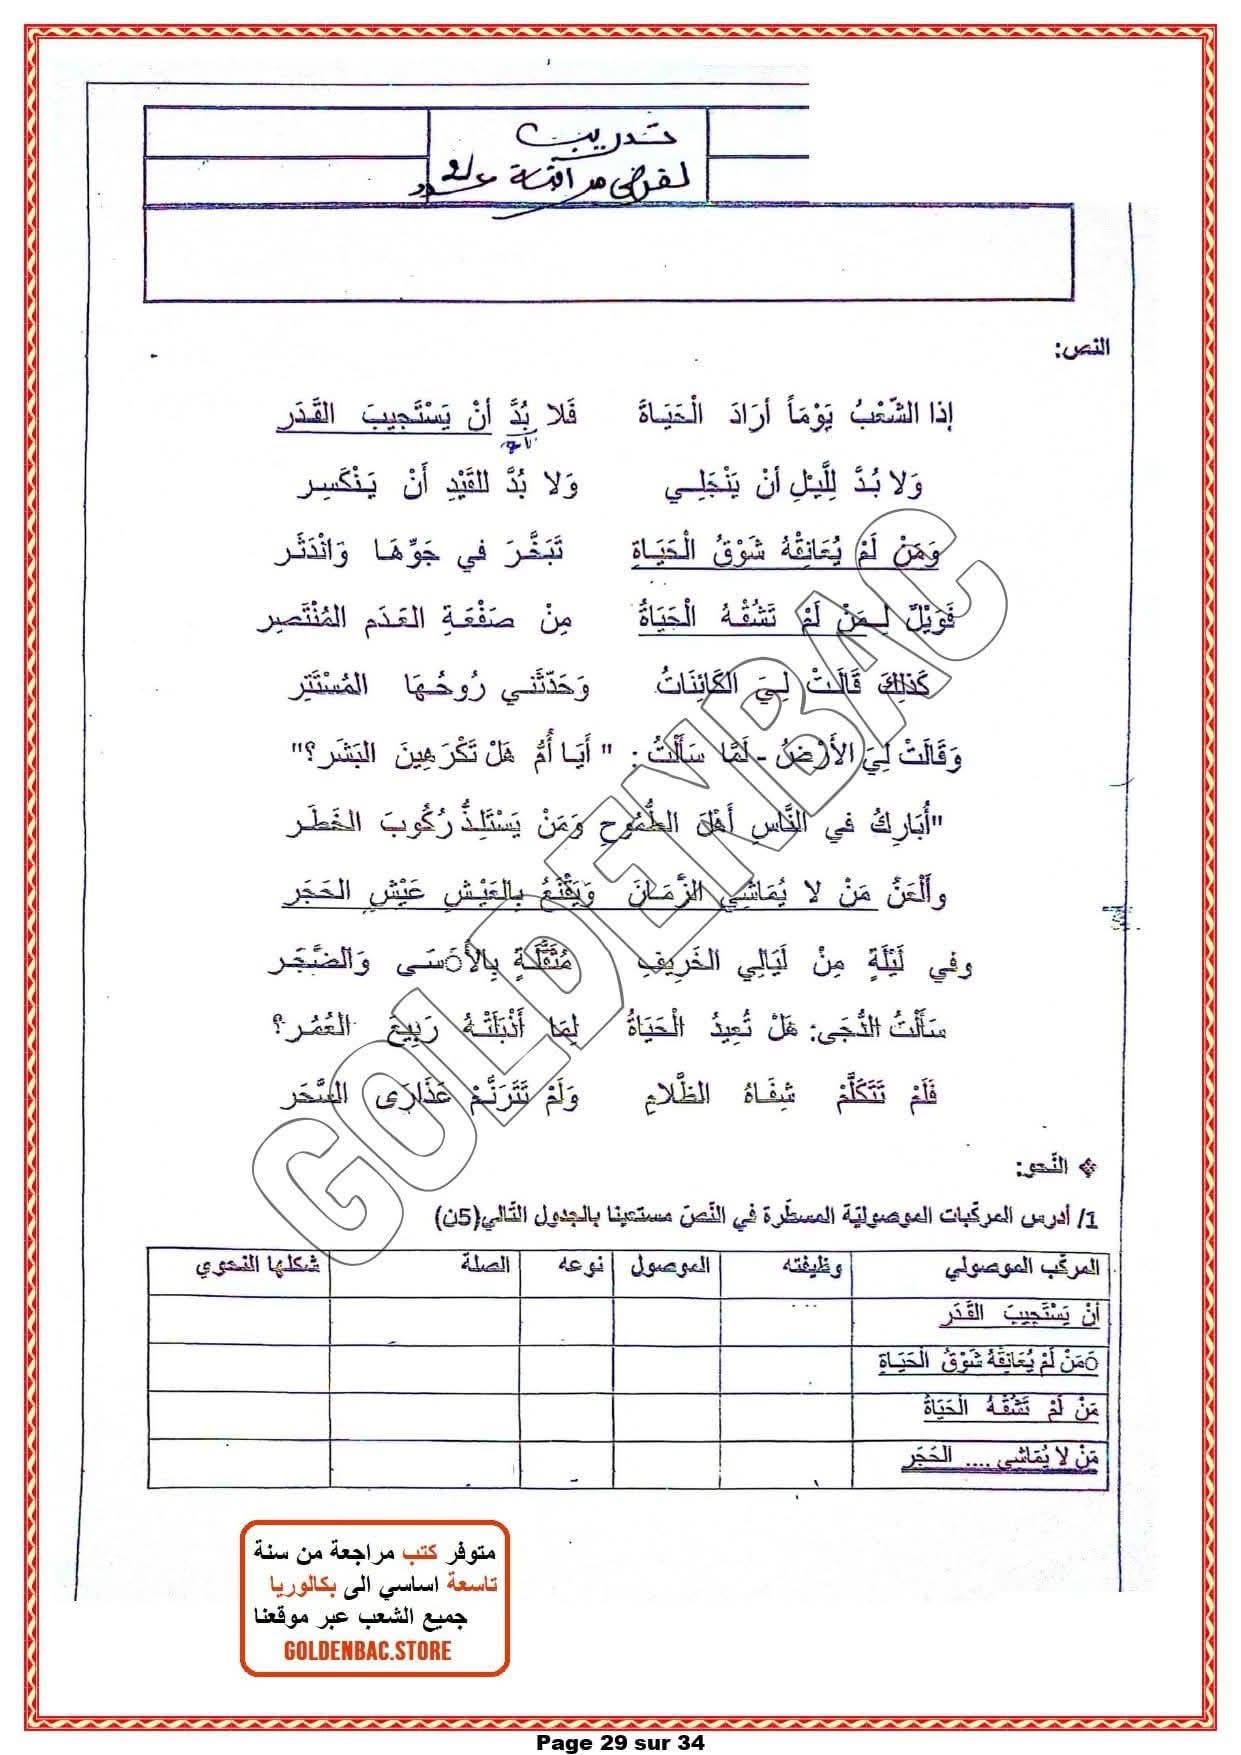 تدريب
لفرض مراقبة عدد
النص:
إذا الشّعْبُ يَوْمَاً أرَادَ الْحَيَاةَ فَلا بُدَّ أنْ يَسْتَجِيبَ القَدَر
وَلا بُدَّ لِلَّيْلِ أنْ يَنْجَلِي وَلا بُدَّ للقَيْدِ أَنْ يَنْكَسِر
وَمَنْ لَمْ يُعَانِقْهُ شَوْقُ الْحَيَاةِ تَبَخَّرَ في جَوِّهَا وَانْدَثَر
فَوَيْلٌ لِمَنْ لَمْ تَشُقْهُ الْحَيَاةُ مِنْ صَفْعَةِ العَدَم المُنْتَصِر
كَذلِكَ قَالَتْ لِيَ الكَائِنَاتُ وَحَدّثَني رُوحُهَا المُسْتَتِر
وَقَالَتْ لِيَ الأَرْضُ - لَمَّا سَأَلْتُ: " أَيَا أُمُّ هَلْ تَكْرَهِينَ البَشَر؟"
"أُبَارِكُ في النَّاسِ أَهْلَ الطُّمُوحِ وَمَنْ يَسْتَلِذُّ رُكُوبَ الخَطَر
وأَلْعَنُ مَنْ لا يُمَاشِي الزَّمَانَ وَيَقْنَعُ بِالعَيْشِ عَيْشِ الحَجَر
وفي لَيْلَةٍ مِنْ لَيَالِي الخَرِيفِ مُثَقَّلَةٍ بِالأَسَى وَالضَّجَر
سَأَلْتُ الدُّجَى: هَلْ تُعِيدُ الْحَيَاةُ لِمَا أَذْبَلَتْهُ رَبِيعَ العُمُر؟
فَلَمْ تَتَكَلَّمْ شِفَاهُ الظَّلامِ وَلَمْ تَتَرَنَّمْ عَذَارَى السَّحَر
❖ النّحو:
1/ أدرس المركّبات الموصوليّة المسطّرة في النّصّ مستعينا بالجدول التّالي(5ن)
المركّب الموصولي وظيفته الموصول نوعه الصلة شكلها النحوي
أنْ يَسْتَجِيبَ القَدَر
َمَنْ لَمْ يُعَانِقْهُ شَوْقُ الْحَيَاةِ
مَنْ لَمْ تَشُقْهُ الْحَيَاةُ
مَنْ لا يُمَاشي .... الحَجَر
متوفر كتب مراجعة من سنة
تاسعة اساسي الى بكالوريا
جميع الشعب عبر موقعنا
GOLDENBAC.STORE
GOLDENBAC
Page 29 sur 34